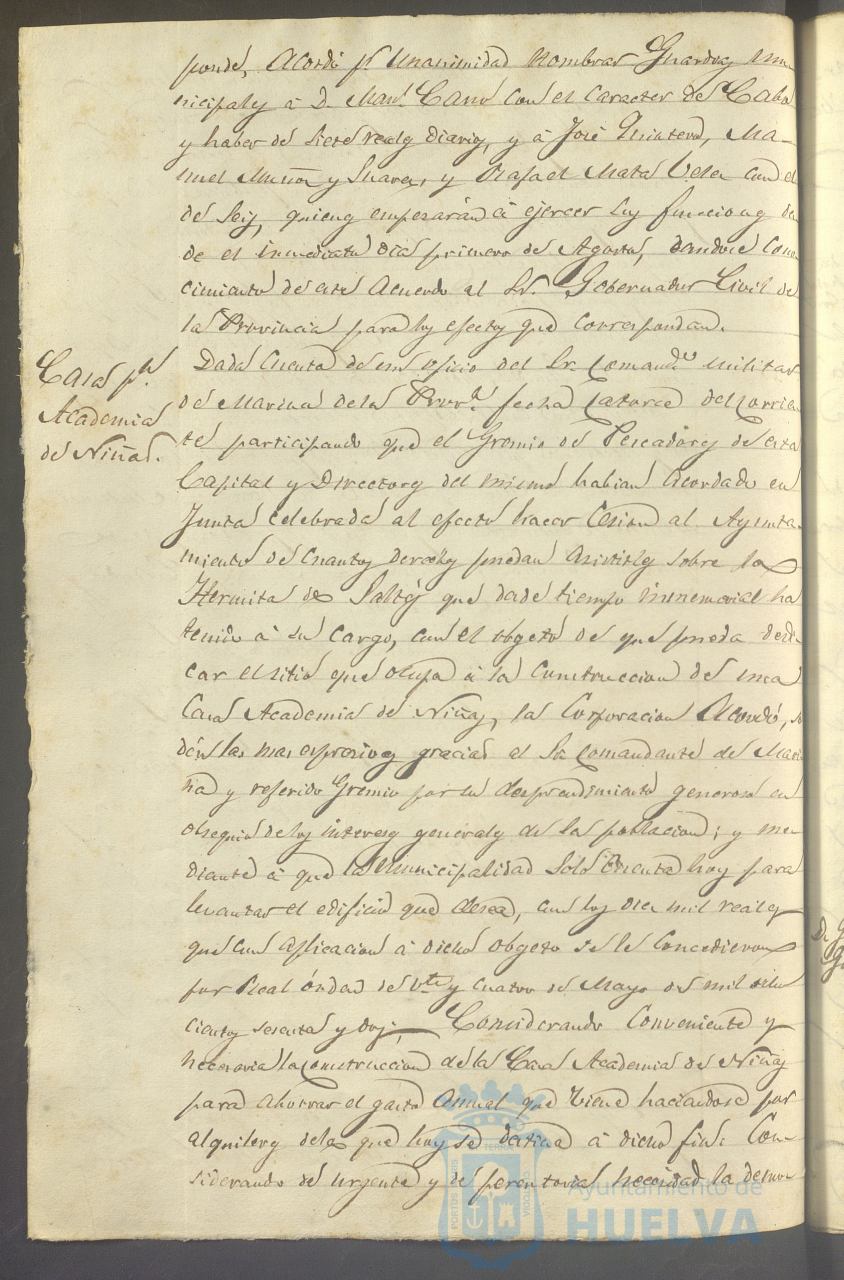 ponde, Acordó pr. Unanimidad Nombrar Guardias mu-
nicipales á D. Manl. Cano con el Caracter de Cabo
y haber de siete reales diarios, y á José Quintero, Ma-
nuel Muñoz y Suarez, y Rafael Mata Vela con el
de seis, quienes empesarán á ejercer sus funciones des-
de el inmediato dia primero de Agosto, dandose Cono-
cimiento de este Acuerdo al Sr. Gobernador Civil de
la Provincia para los efectos que correspondan.
Casa pa.
Academia
de Niñas.
Dada Cuenta de un oficio del Sr. Comandte. militar
de Marina de la Prova. fecha Catorce del Corrien-
te participando que el Gremio de Pescadores de esta
Capital y Directores del mismo habian acordado en
Junta celebrada al efecto hacer Cesion al Ayunta-
miento de Cuantos derechos puedan asistirles sobre la
Hermita de Saltés que desde tiempo inmemorial ha
tenido á su Cargo, con el obgeto de que pueda dedi-
car el sitio que ocupa á la Construccion de una
Casa Academia de Niñas, la Corporacion Acordó, se
dén las mas espresivas gracias al Sr. Comandante de Mari-
na y referido Gremio por su desprendimiento generoso en
obsequio de los intereses generales de la poblacion; y me-
diante á que la Municipalidad Solo Cuenta hoy para
levantar el edificio que desea, con los diez mil reales
que con aplicacion á dicho obgeto se le Concedieron
por Real órden de Vte. y Cuatro de Mayo de mil ocho
cientos sesenta y dos; Considerando Conveniente y
necesaria la Construccion de la Casa Academia de Niñas
para ahorrar el gasto Anual que viene haciendose por
alquileres de la que hoy se destina á dicho fin: Con-
siderando de urgente y de perentoria necesidad la
PORTUS MARIS
ET TERRE
CUSTODIA
Ayuntamiento de
HUELVA